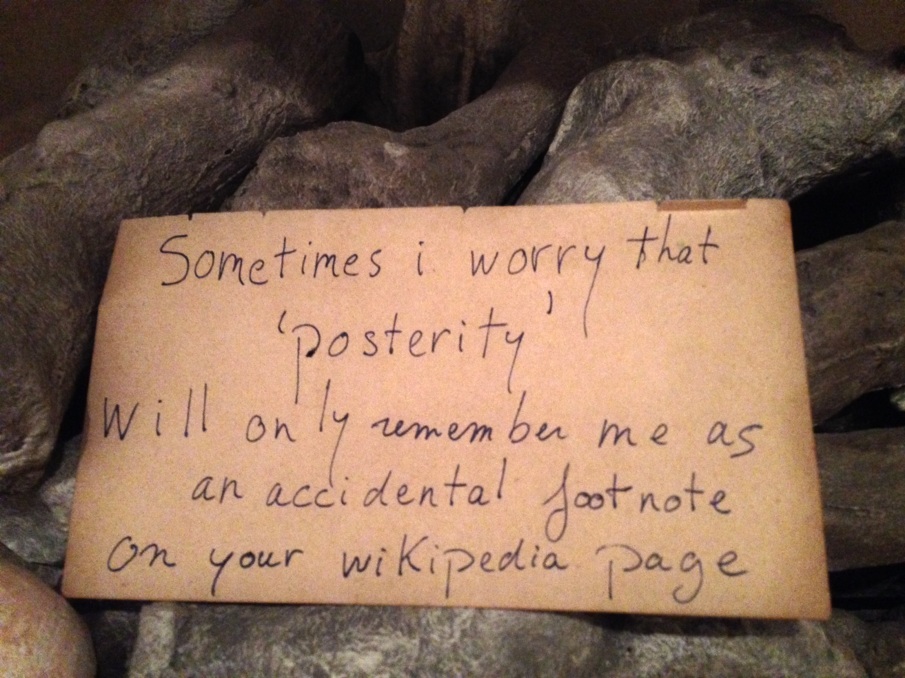 Sometimes i worry that
'posterity'
Will only remember me as
an accidental footnote
on your wikipedia page